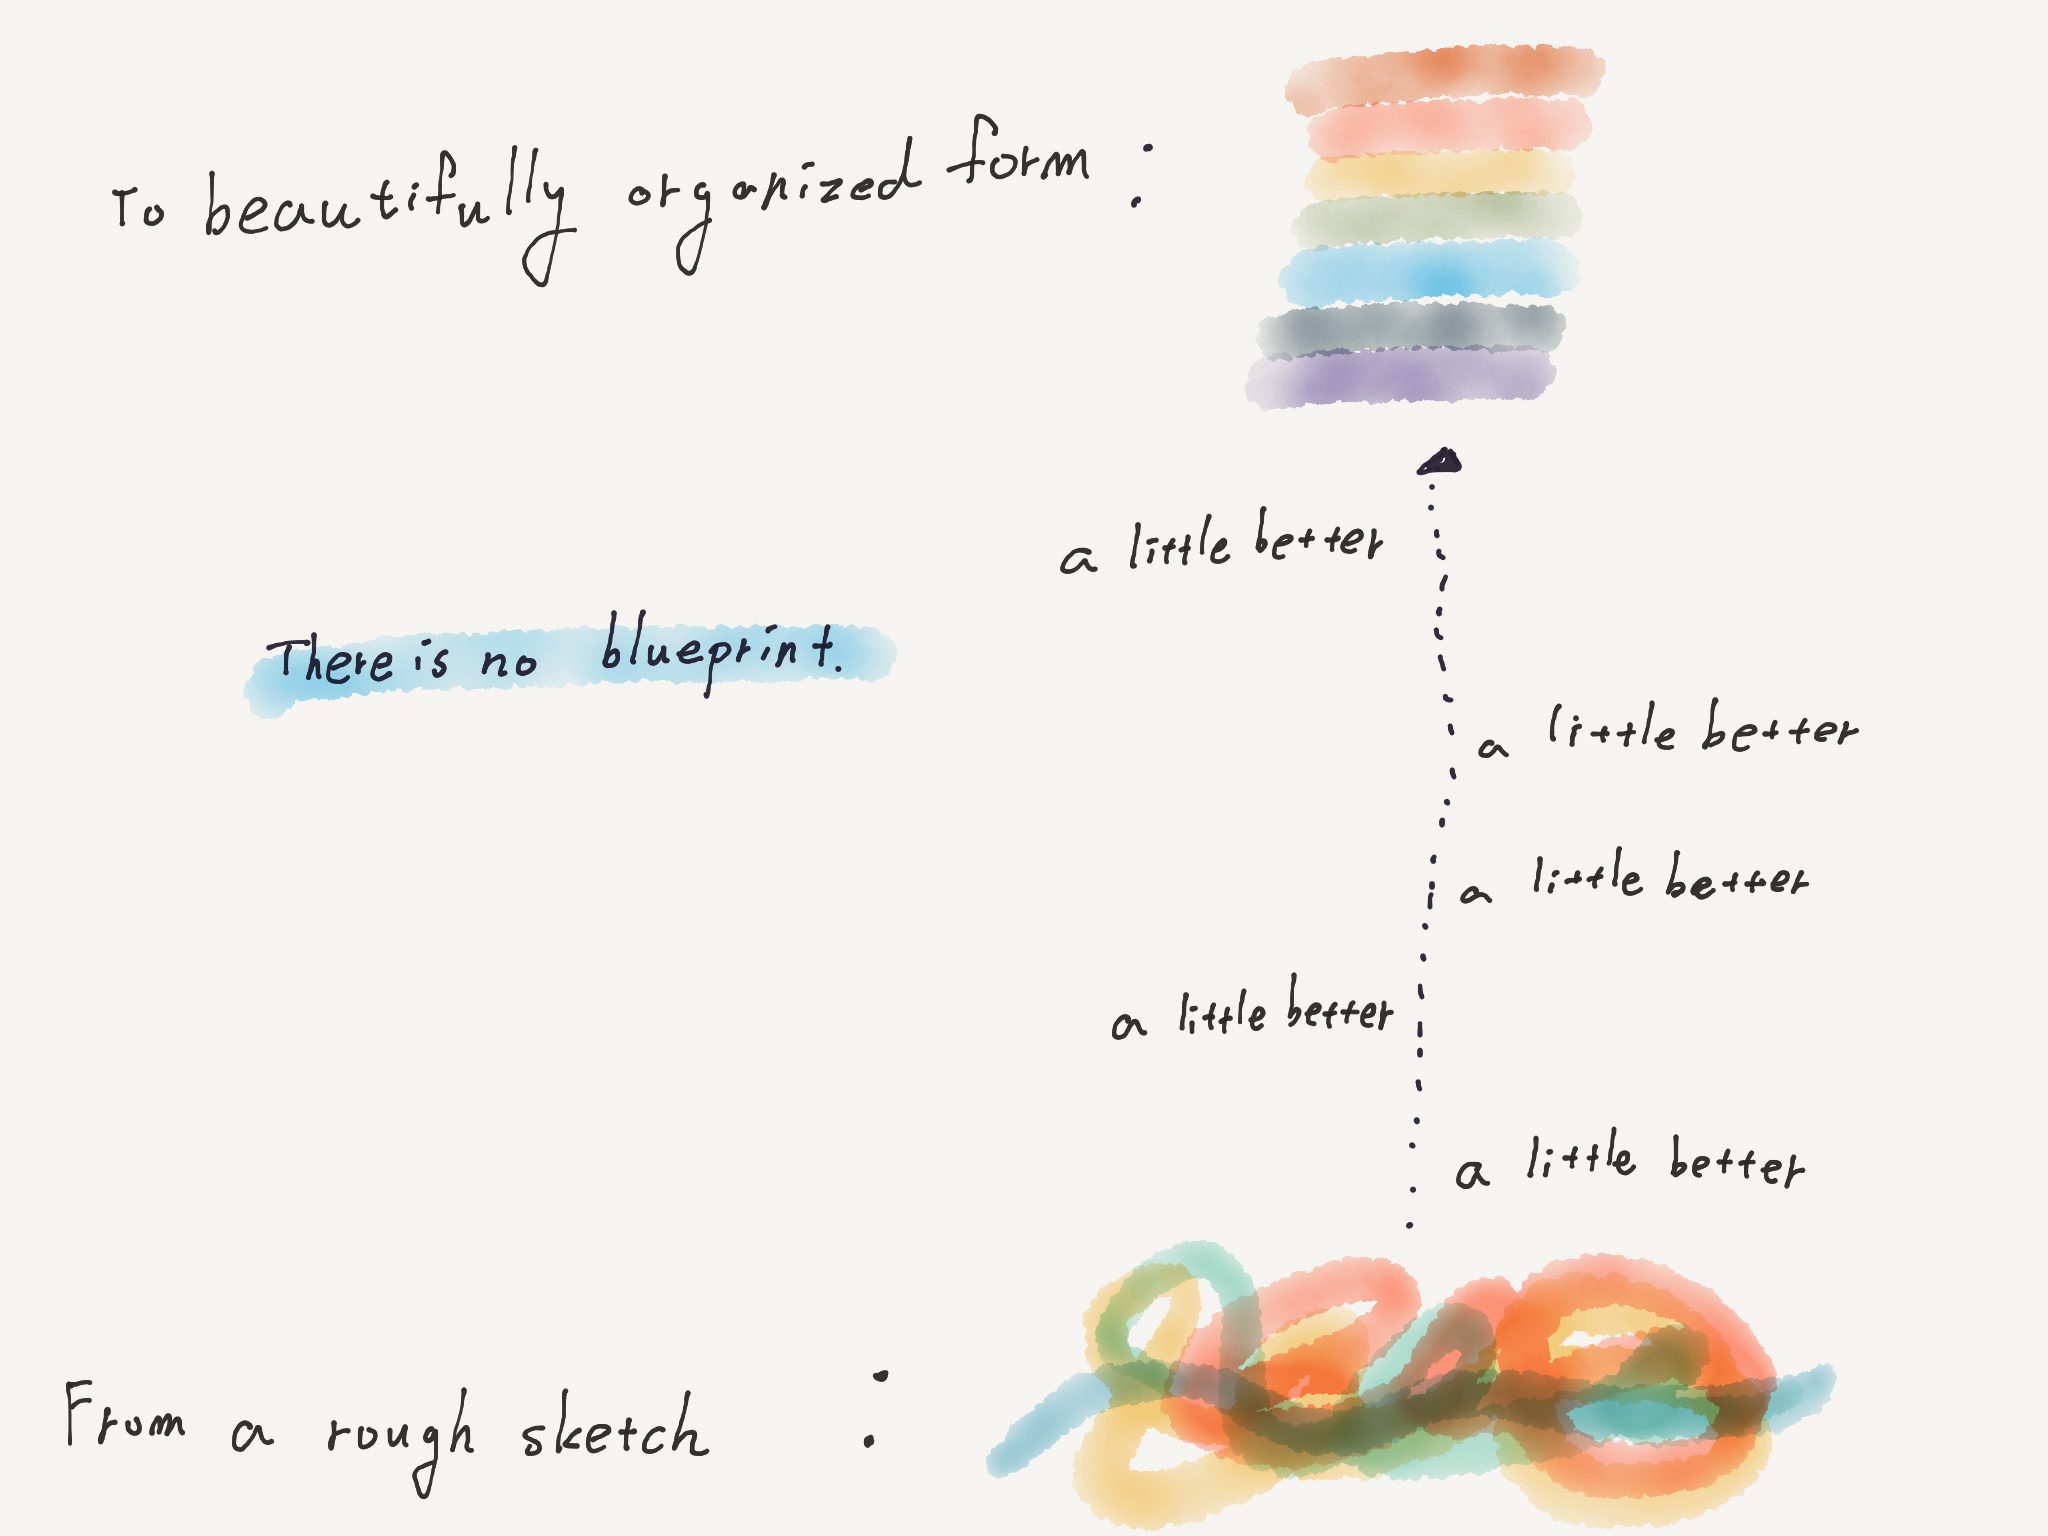 To beautifully organized form :
a little better
There is no blueprint.
a little better
a little better
a little better
a little better
From a rough sketch :